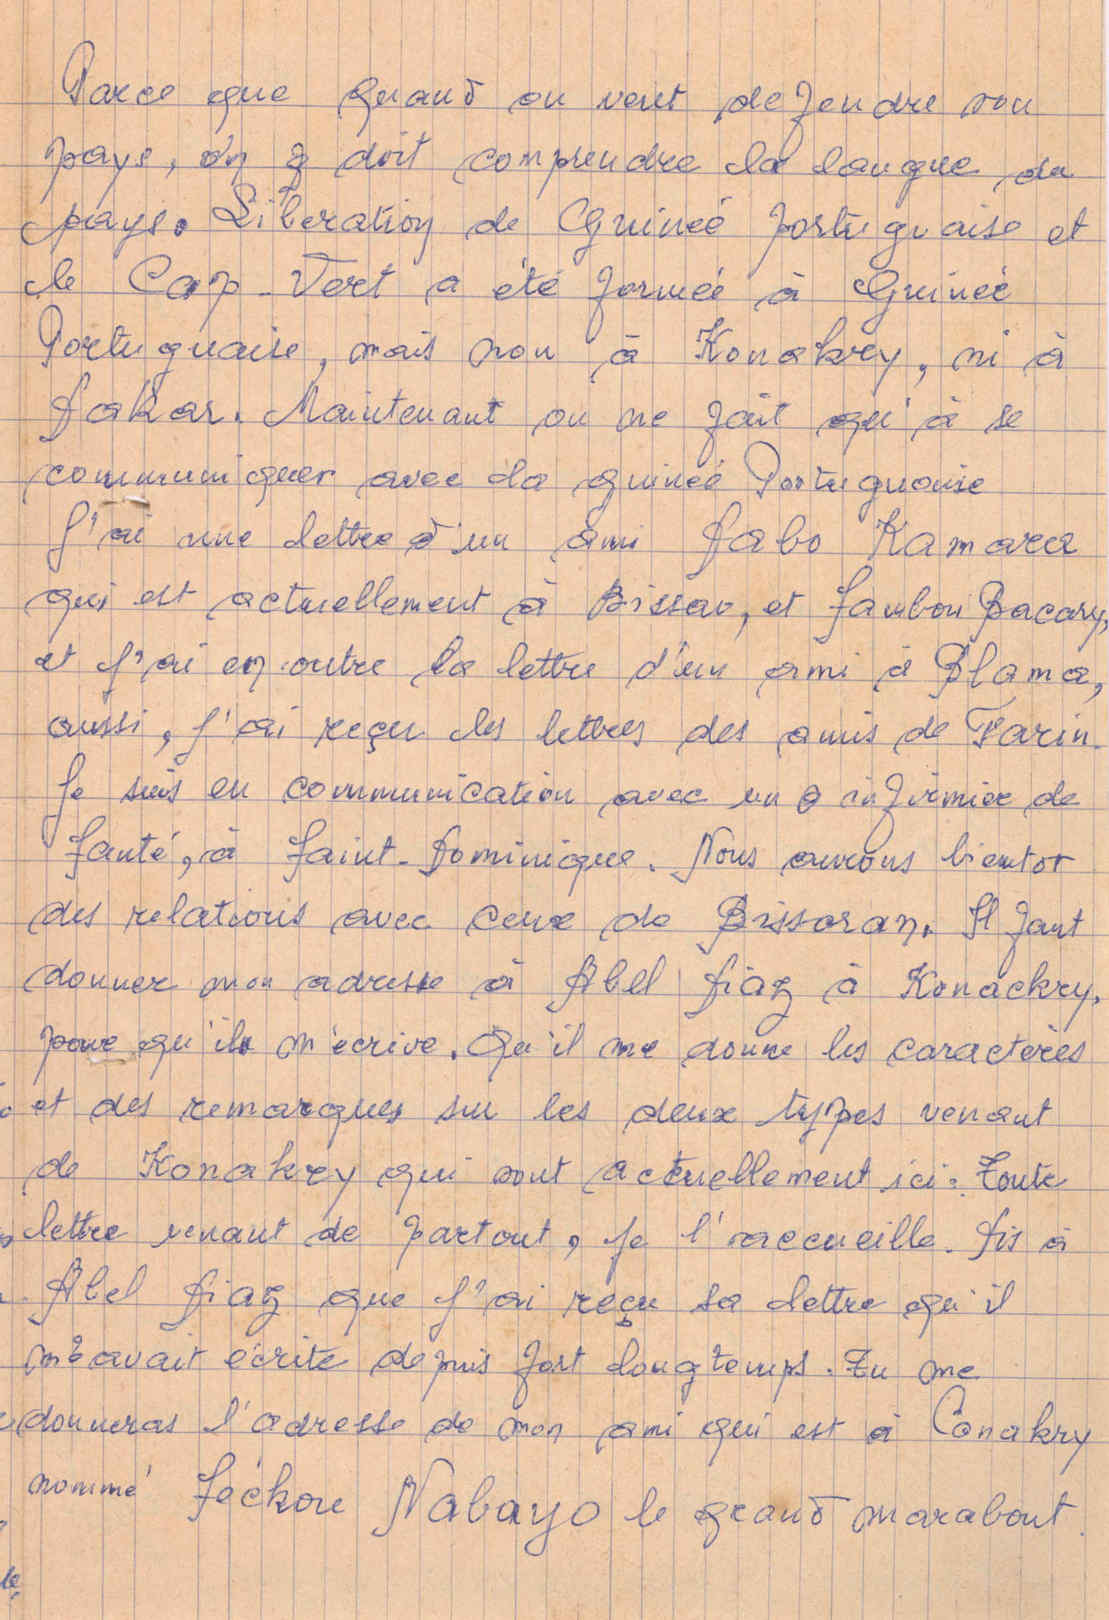 Parce que quand on veut defendre son
pays, on y doit comprendre la langue du
pays. Libération de Guinée portuguaise et
le Cap-Vert a été formée à Guinée
Portuguaise, mais non à Konakry, ni à
Dakar. Maintenant on ne fait qu'à se
communiquer avec la guinée Portuguaise
J'ai une lettre d'un ami Sabo Kamara
qui est actuellement à Bissao, et Sambou Bacary,
et j'ai en outre la lettre d'un ami à Blama,
aussi, j'ai reçu les lettres des amis de Farin.
Je suis en communication avec un infirmier de
Santé, à Saint-Dominique. Nous aurons bientot
des relations avec ceux de Bissoran. Il faut
donner mon adresse à Abel Diaz à Konackry,
pour qu'il m'écrive. Qu'il me donne les caractères
et des remarques su les deux types venant
de Konakry qui sont actuellement ici. Toute
lettre venant de partout, je l'accueille. Dis à
Abel Diaz que j'ai reçu sa lettre qu'il
m'avait écrite depuis fort longtemps. Tu me
donneras l'adresse de mon ami qui est à Conakry
nommé Séckou Nabayo le grand marabout.